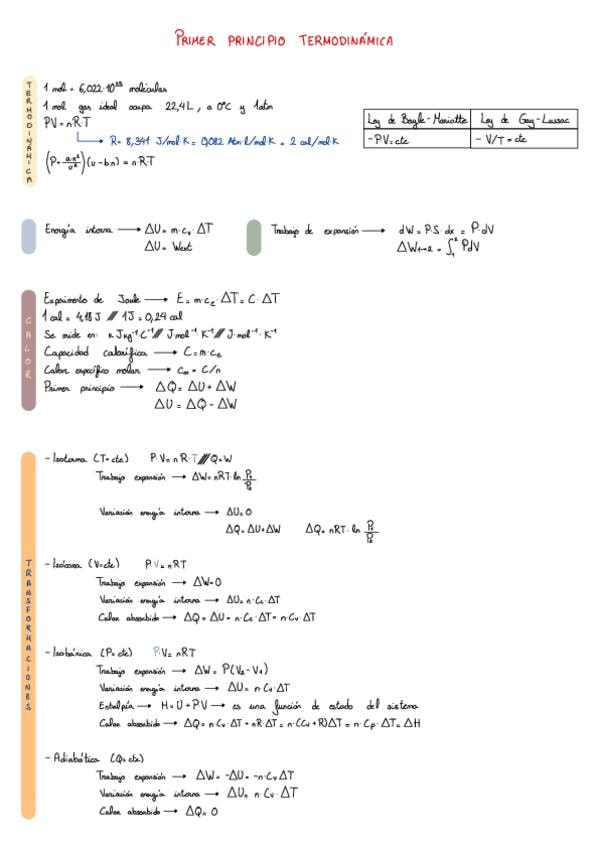 PRIMER PRINCIPIO TERMODINÁMICA
TERMODINÁMICA
1 mol = 6,022·10²³ moléculas
1 mol gas ideal ocupa 22,4 L, a 0°C y 1atm
PV = nR·T
R = 8,341 J/mol·K = 0,082 Atm·l/mol·K = 2 cal/mol·K
(P + a·n²/v²)(v - b·n) = n·R·T
Ley de Boyle-Mariotte | Ley de Gay-Lussac
- P·V = cte | - V/T = cte
Energía interna → ΔU = m·cᵥ·ΔT
ΔU = Wext
Trabajo de expansión → dW = P·S·dx = P·dV
ΔW₁→₂ = ∫₁² PdV
CALOR
Experimento de Joule → E = m·cₑ·ΔT = C·ΔT
1 cal = 4,18 J // 1J = 0,24 cal
Se mide en: KJkg⁻¹·C⁻¹ // Jmol⁻¹·K⁻¹ // J·mol⁻¹·K⁻¹
Capacidad calorífica → C = m·cₑ
Calor específico molar → cₘ = C/n
Primer principio → ΔQ = ΔU + ΔW
ΔU = ΔQ - ΔW
TRANSFORMACIONES
- Isoterma (T = cte) P·V = nR·T /// Q = W
Trabajo expansión → ΔW = nRT·ln P₁/P₂
Variación energía interna → ΔU = 0
ΔQ = ΔU + ΔW ΔQ = nRT·ln P₁/P₂
- Isócora (V = cte) P·V = nRT
Trabajo expansión → ΔW = 0
Variación energía interna → ΔU = n·Cᵥ·ΔT
Calor absorbido → ΔQ = ΔU = n·Cᵥ·ΔT = n·Cᵥ·ΔT
- Isobárica (P = cte) P·V = nRT
Trabajo expansión → ΔW = P(V₂ - V₁)
Variación energía interna → ΔU = n·Cᵥ·ΔT
Entalpía → H = U + PV → es una función de estado del sistema
Calor absorbido → ΔQ = n·Cᵥ·ΔT + nR·ΔT = n·(Cᵥ + R)ΔT = n·Cₚ·ΔT = ΔH
- Adiabática (Q = cte)
Trabajo expansión → ΔW = -ΔU = -n·Cᵥ·ΔT
Variación energía interna → ΔU = n·Cᵥ·ΔT
Calor absorbido → ΔQ = 0